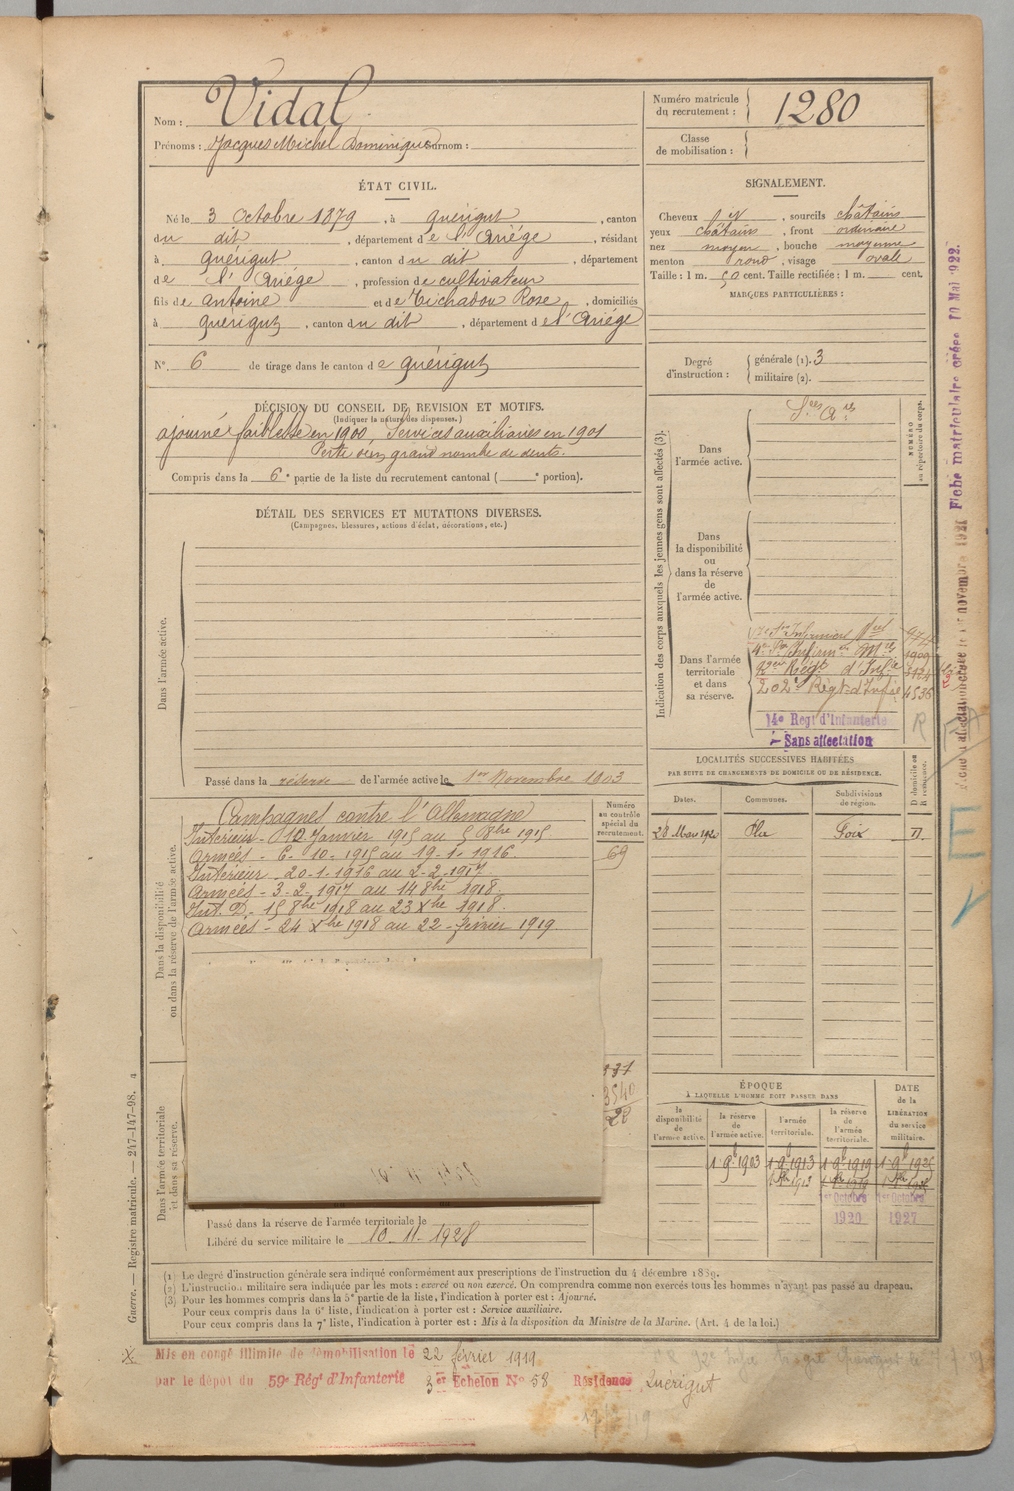 Nom : Vidal
Prénoms : Jacques Michel Dominique Surnom :
Numéro matricule
du recrutement : 1280
Classe
de mobilisation :
ÉTAT CIVIL.
Né le 3 Octobre 1879, à Quérigut, canton
du dit, département de l'Ariége, résidant
à Quérigut, canton du dit, département
de l'Ariége, profession de cultivateur
fils de Antoine et de Tichadou Rose, domiciliés
à Quérigut, canton du dit, département de l'Ariége
N° 6 de tirage dans le canton de Quérigut
SIGNALEMENT.
Cheveux et, sourcils châtains
yeux châtains, front ordinaire
nez moyen, bouche moyenne
menton rond, visage ovale
Taille : 1 m. 50 cent. Taille rectifiée : 1 m. cent.
MARQUES PARTICULIÈRES :
Degré
d'instruction :
générale (1). 3
militaire (2).
DÉCISION DU CONSEIL DE REVISION ET MOTIFS.
(Indiquer la nature des dispenses.)
ajourné faiblesse en 1900, Services auxiliaires en 1901
Perte d'un grand nombre de dents.
Compris dans la 6e partie de la liste du recrutement cantonal ( e portion).
DÉTAIL DES SERVICES ET MUTATIONS DIVERSES.
(Campagnes, blessures, actions d'éclat, décorations, etc.)
Dans l'armée active.
Passé dans la réserve de l'armée active le 1er Novembre 1903
Indication des corps auxquels les jeunes gens sont affectés (3).
NUMÉRO
au répertoire du corps.
Dans
l'armée active.
Dans
la disponibilité
ou
dans la réserve
de
l'armée active.
Dans l'armée
territoriale
et dans
sa réserve.
202e Régt d'Infie 4536
14e Regt d'Infanterie
Sans affectation
Fiche matriculaire créée 10 Mai 1922.
LOCALITÉS SUCCESSIVES HABITÉES
PAR SUITE DE CHANGEMENTS DE DOMICILE OU DE RÉSIDENCE.
Dates. Communes. Subdivisions
de région. D domicile ou
R résidence.
28 Mars 1920 Pla Foix D.
E
Dans la disponibilité
ou dans la réserve de l'armée active.
Numéro
au contrôle
spécial du
recrutement.
69
Campagnes contre l'Allemagne
Intérieur - 12 Janvier 1915 au 5 8bre 1915
Armées - 6 - 10 - 1915 au 19 - 1 - 1916.
Intérieur - 20 - 1 - 1916 au 2 - 2 - 1917
Armées - 3 - 2 - 1917 au 14 8bre 1918.
Int. D. - 15 8bre 1918 au 23 Xbre 1918.
Armées - 24 Xbre 1918 au 22 - février 1919
3540
22
Dans l'armée territoriale
et dans sa réserve.
Passé dans la réserve de l'armée territoriale le
Libéré du service militaire le 10 - 11 - 1928
ÉPOQUE
À LAQUELLE L'HOMME DOIT PASSER DANS
la
disponibilité
de
l'armée active.
la réserve
de
l'armée active.
l'armée
territoriale.
la réserve
de
l'armée
territoriale.
DATE
de la
LIBÉRATION
du service
militaire.
1 9b 1903 1 9b 1913 1 9b 1919 1 9b 1926
1er Octobre 1er Octobre
1920 1927
(1) Le degré d'instruction générale sera indiqué conformément aux prescriptions de l'instruction du 4 décembre 1889.
(2) L'instruction militaire sera indiquée par les mots : exercé ou non exercé. On comprendra comme non exercés tous les hommes n'ayant pas passé au drapeau.
(3) Pour les hommes compris dans la 5e partie de la liste, l'indication à porter est : Ajourné.
Pour ceux compris dans la 6e liste, l'indication à porter est : Service auxiliaire.
Pour ceux compris dans la 7e liste, l'indication à porter est : Mis à la disposition du Ministre de la Marine. (Art. 4 de la loi.)
Guerre. — Registre matricule. — 247-147-98. 4
Mis en congé illimité de démobilisation le 22 février 1919
par le dépôt du 59e Régt d'Infanterie 3er Échelon N° 58 Résidence Quérigut